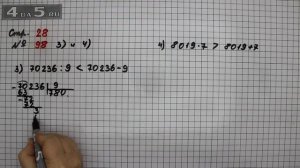 4.5
ГДЗ
Стр. 28
№ 98 3) и 4)
4) 8019·7 > 8019+7
3) 70236 : 9 < 70236 - 9
-70236 | 9
63 | 780
-72
72
3